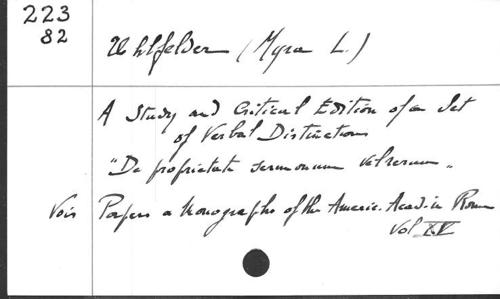 223
82
Uhlfelder (Myra L.)
A Study and Critical Edition of a Set
of Verbal Distinctions
"De proprietate sermonum vel rerum"
Vois Papers a Monographs of the Americ. Acad. in Rome
Vol XV